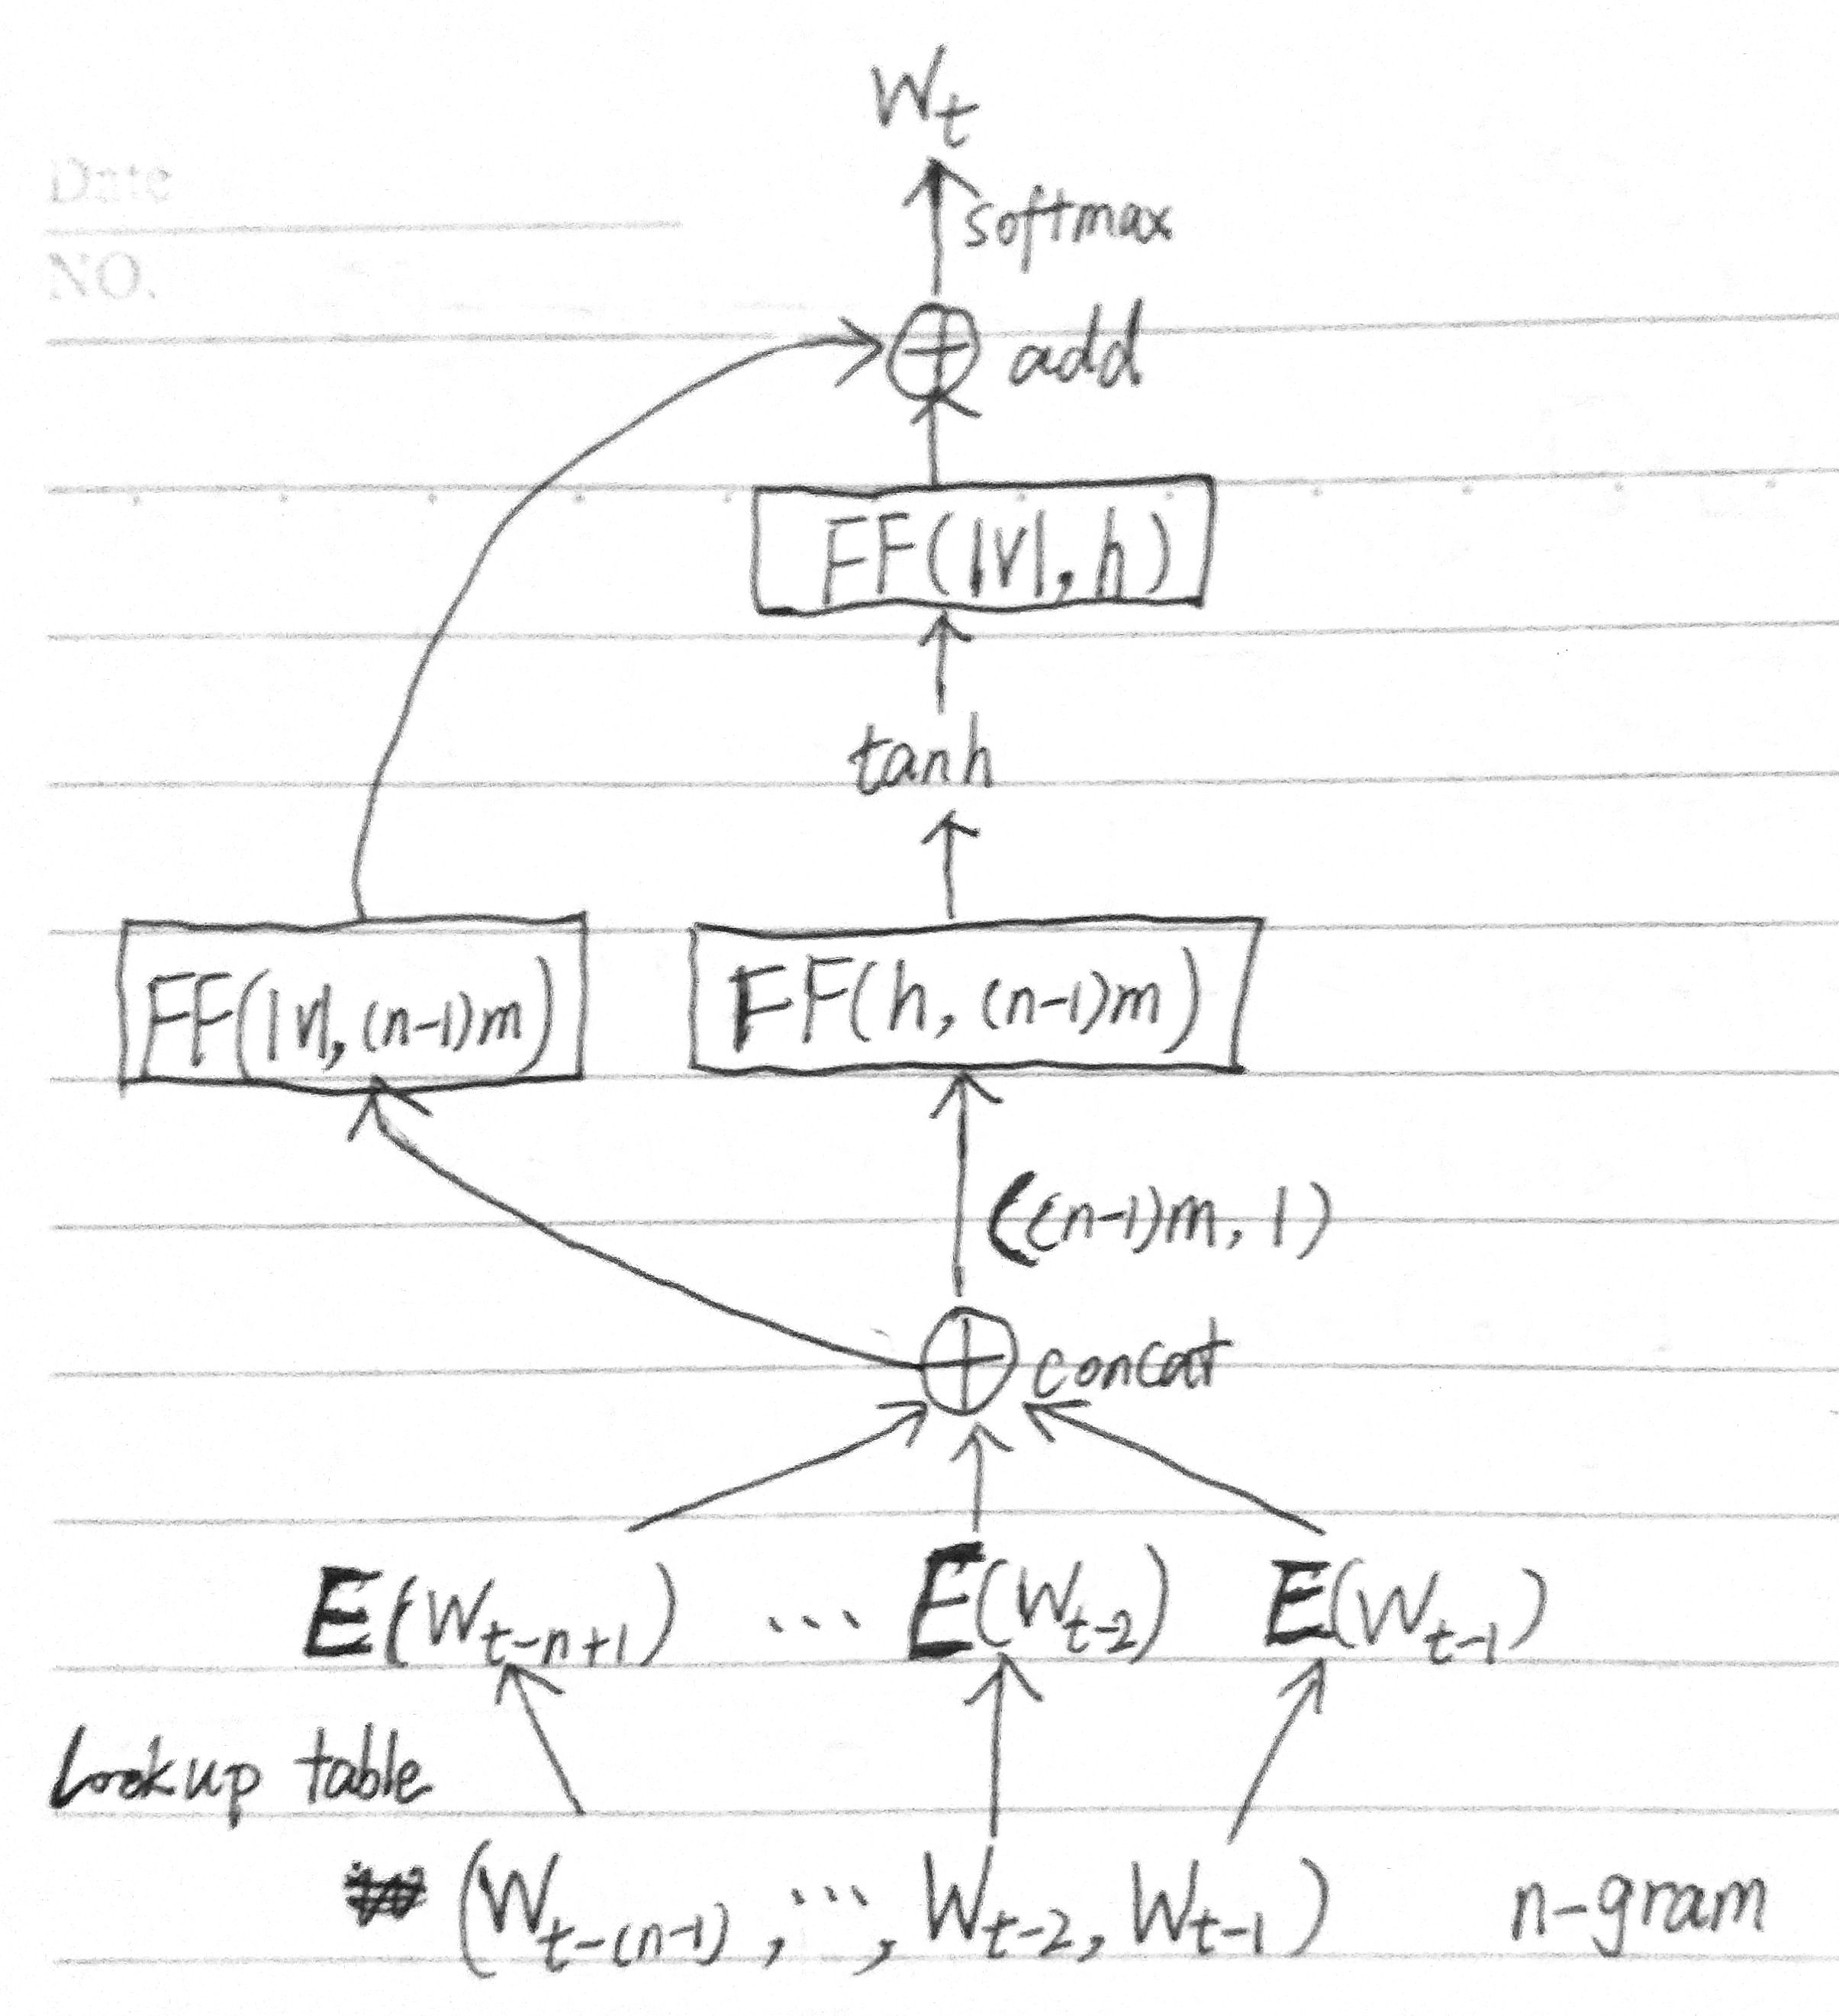 W_t
Date
softmax
NO.
add
FF(|V|, h)
tanh
FF(|V|, (n-1)m) FF(h, (n-1)m)
((n-1)m, 1)
concat
E(W_{t-n+1}) ... E(W_{t-2}) E(W_{t-1})
Lookup table
(W_{t-(n-1)}, ..., W_{t-2}, W_{t-1}) n-gram